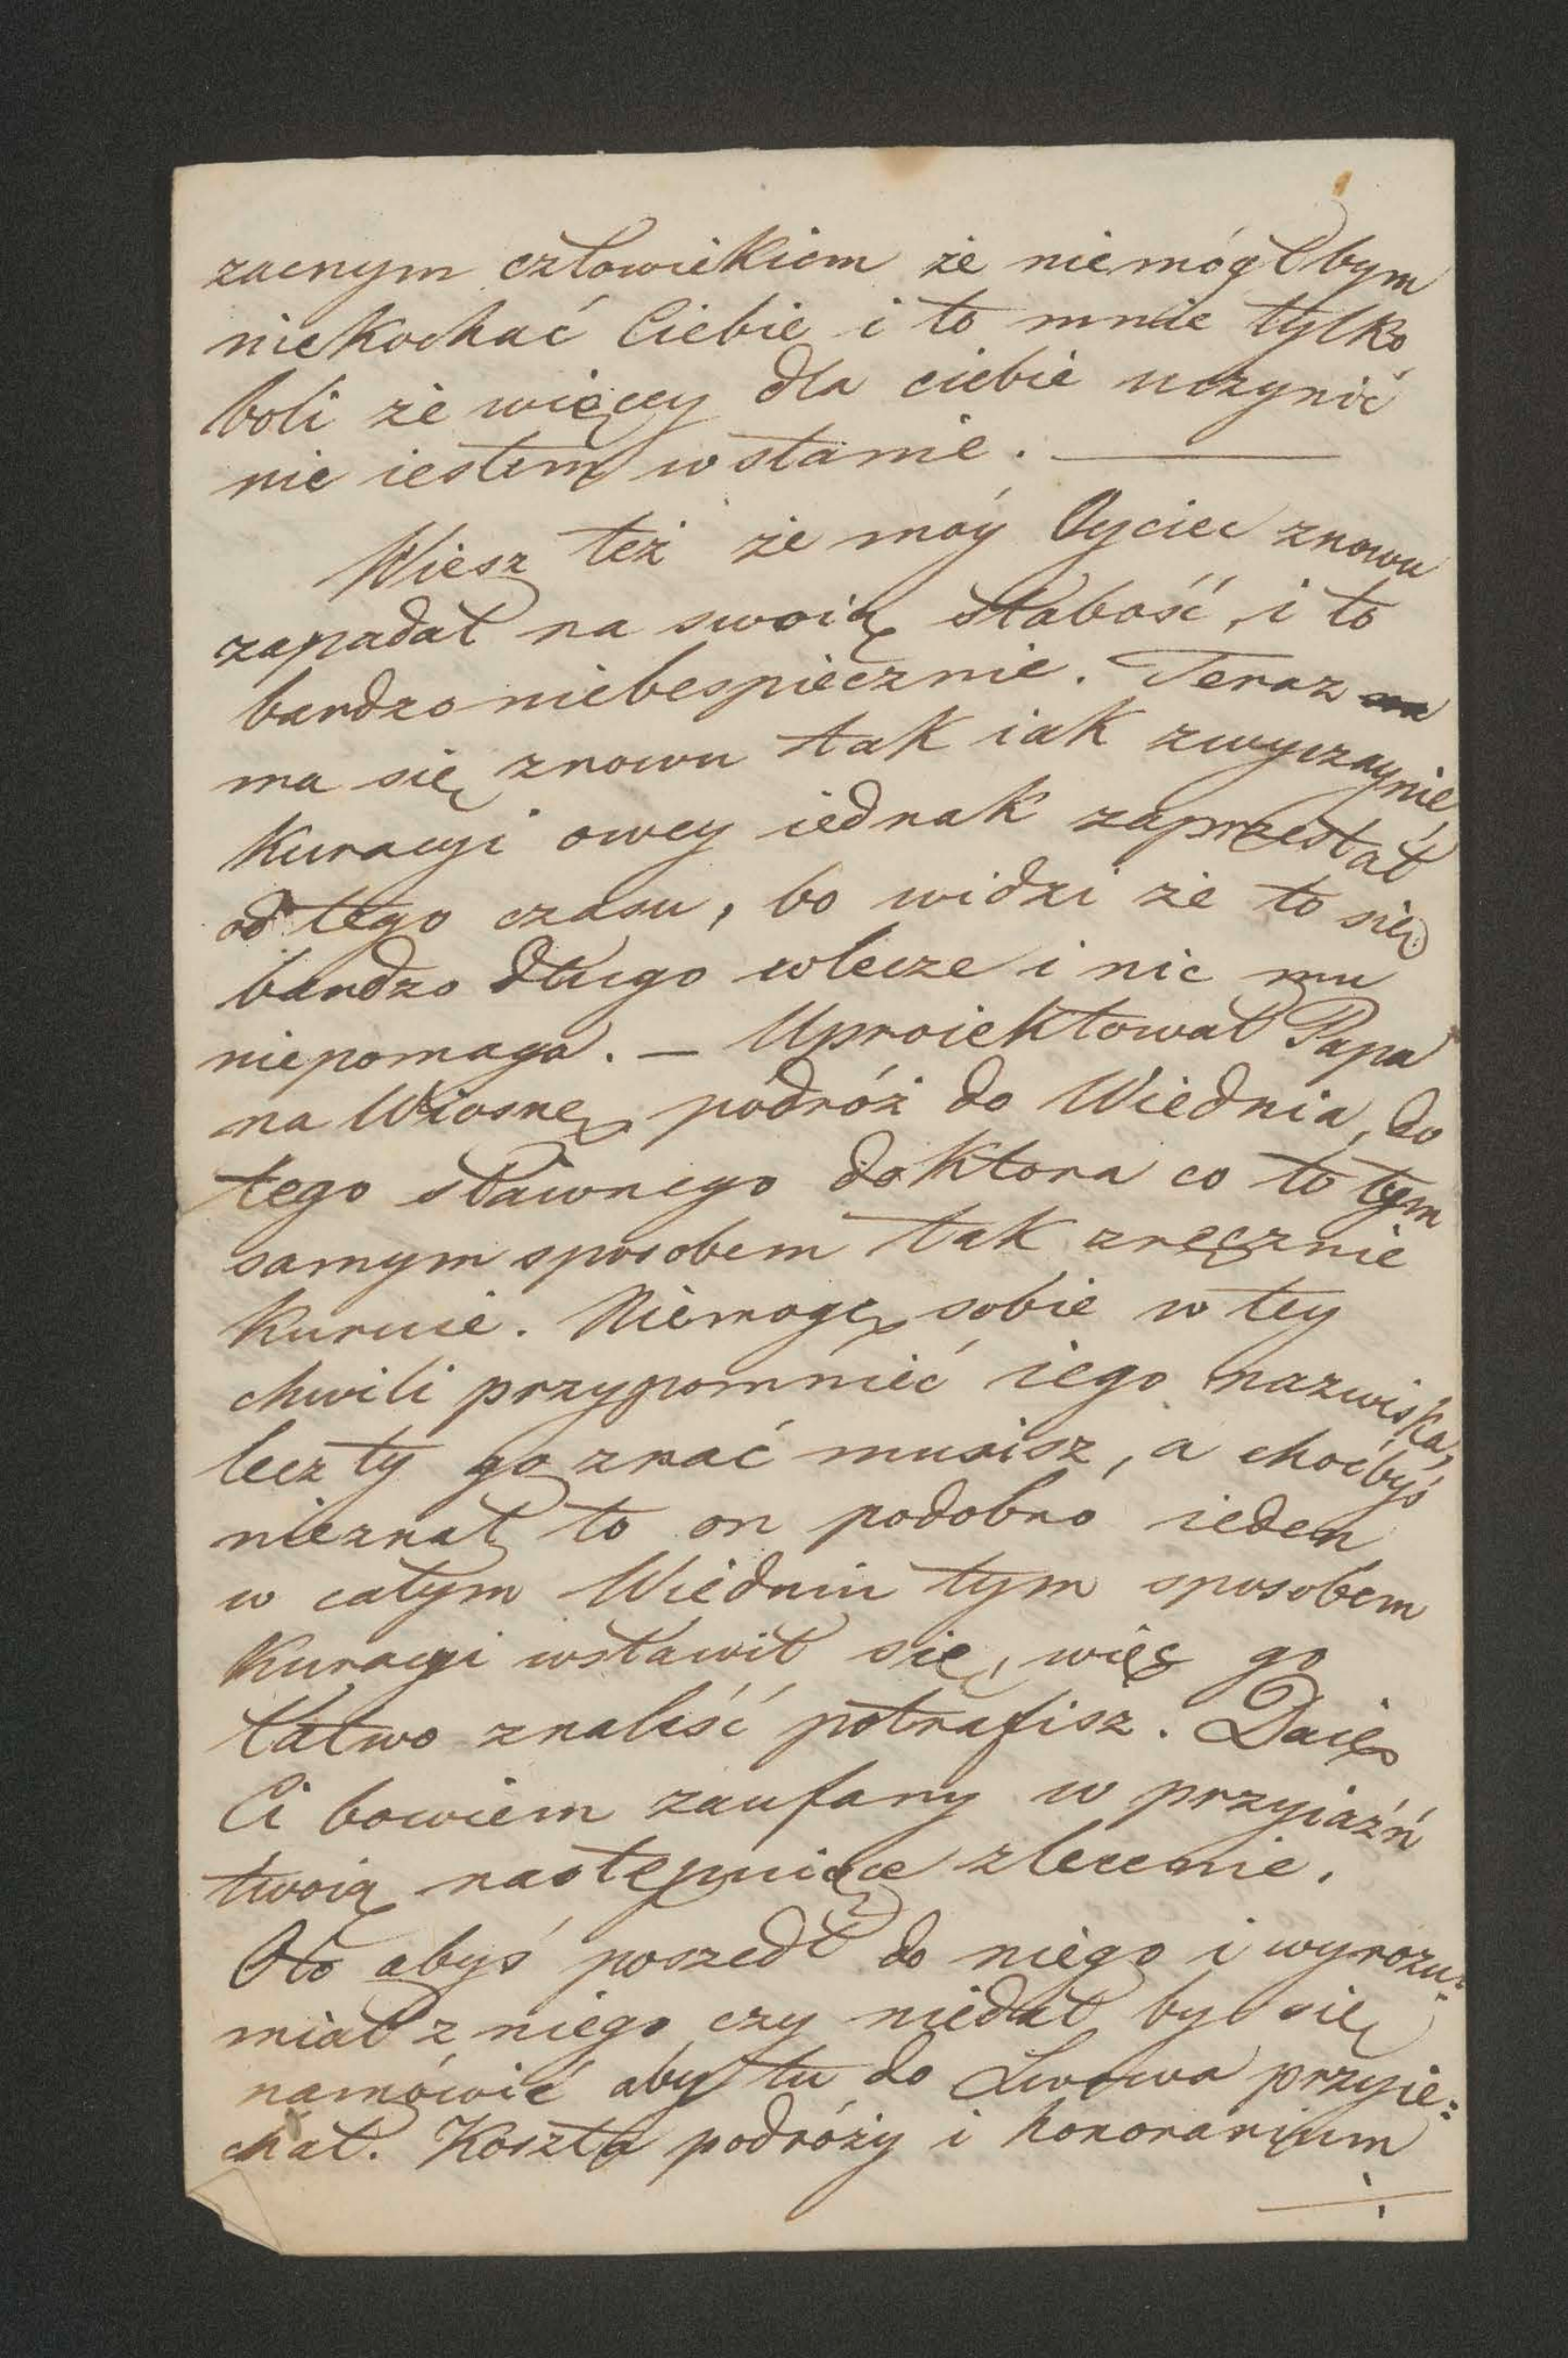 zacnym człowiekiem że niemógłbym
niekochać Ciebie i to mnie tylko
boli że więcey dla ciebie uczynić
nie iestem w stanie. —
Wiesz też że móy Oyciec znowu
zapadał na swoią słabość, i to
bardzo niebespiecznie. Teraz
ma się znowu tak iak zwyczaynie,
Kuracyi owey iednak zaprzestał
od tego czasu, bo widzi że to się
bardzo długo wlecze i nic mu
niepomaga. — Uproiektował Papa
na Wiosnę podróż do Wiednia, do
tego sławnego doktora co to tym
samym sposobem tak zręcznie
kuruie. Niemogę sobie w tey
chwili przypomnieć iego nazwiska,
lecz ty go znać musisz, a choćbyś
nieznał to on podobno ieden
w całym Wiedniu tym sposobem
Kuracyi wsławił się, więc go
łatwo znaleść potrafisz. Daię
Ci bowiem zaufany w przyiaźń
twoią następuiące zlecenie.
Oto abyś poszedł do niego i wyrozu=
miał z niego czy niedał by się
namówić aby tu do Lwowa przyie=
chał. Koszta podróży i honorarium